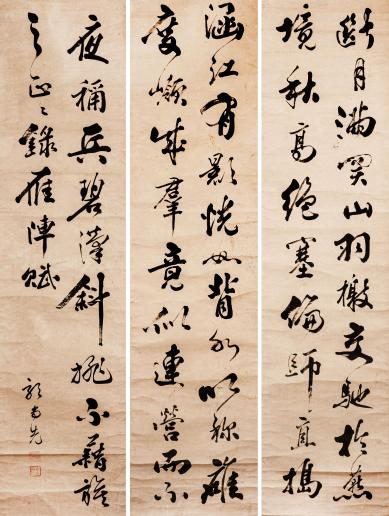 月滿關山羽檄交馳於燕
境秋高絕塞偏師直搗
涵江有影恍如背水以称雄
度嶺成羣竟似連營而不
夜稱兵碧漢斜挑不藉
之正〻錄雁陣賦
郭尚先